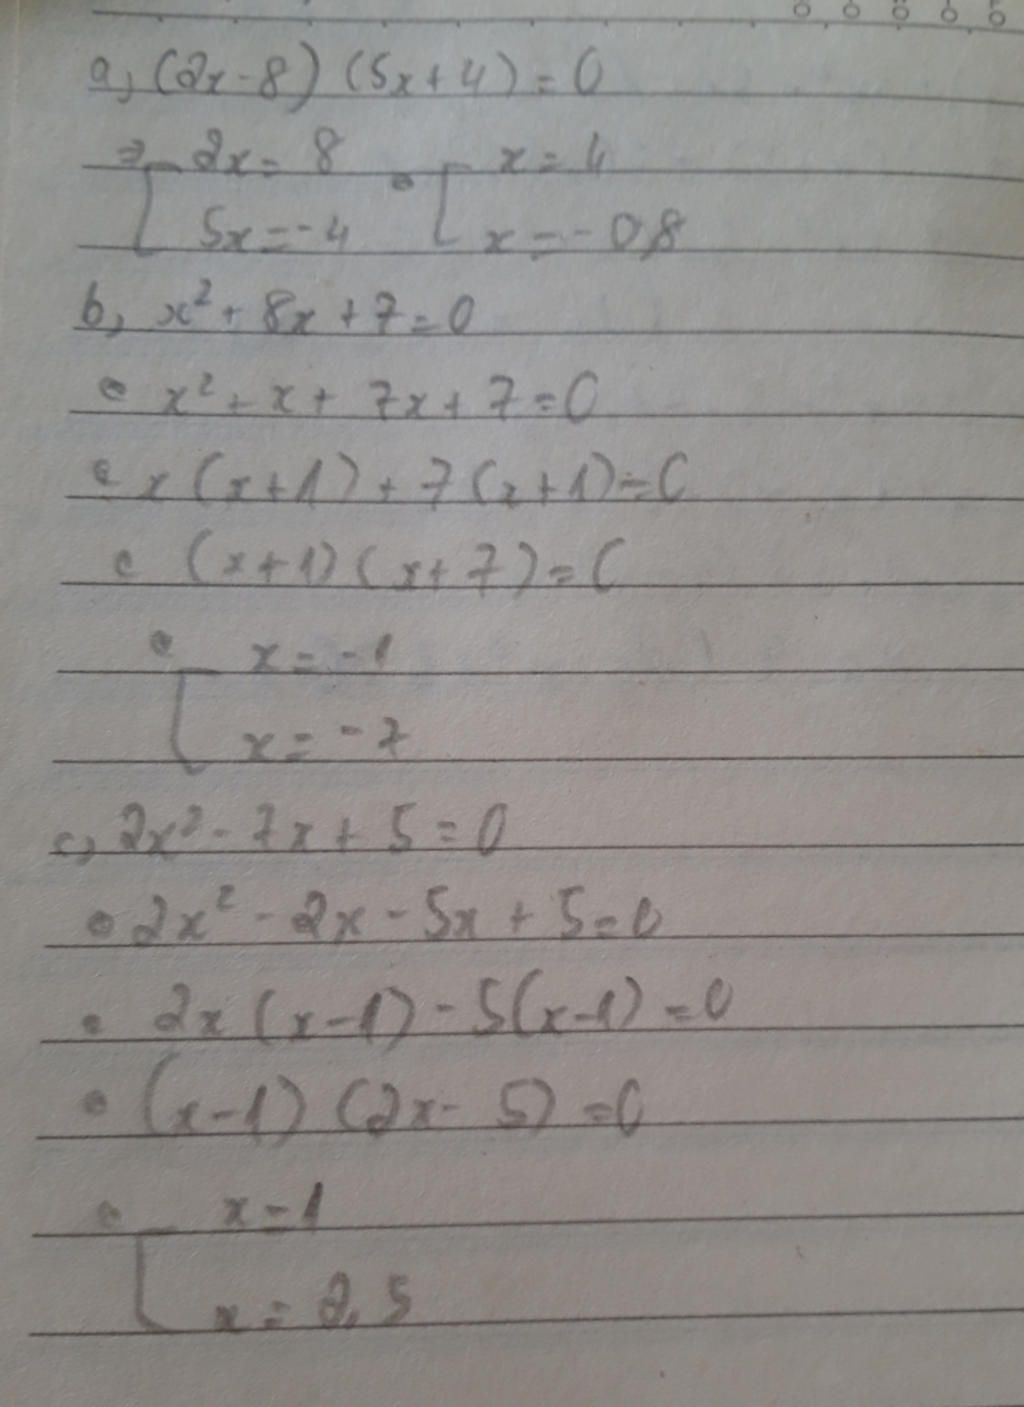 a, (2x-8) (5x+4) = 0
⇒ [ 2x = 8 • [ x = 4
5x = -4 x = -0,8
b, x² + 8x + 7 = 0
• x² + x + 7x + 7 = 0
• x(x+1) + 7(x+1) = 0
• (x+1)(x+7) = 0
• [ x = -1
x = -7
c, 2x² - 7x + 5 = 0
• 2x² - 2x - 5x + 5 = 0
• 2x (x-1) - 5(x-1) = 0
• (x-1) (2x - 5) = 0
• [ x = 1
x = 2,5